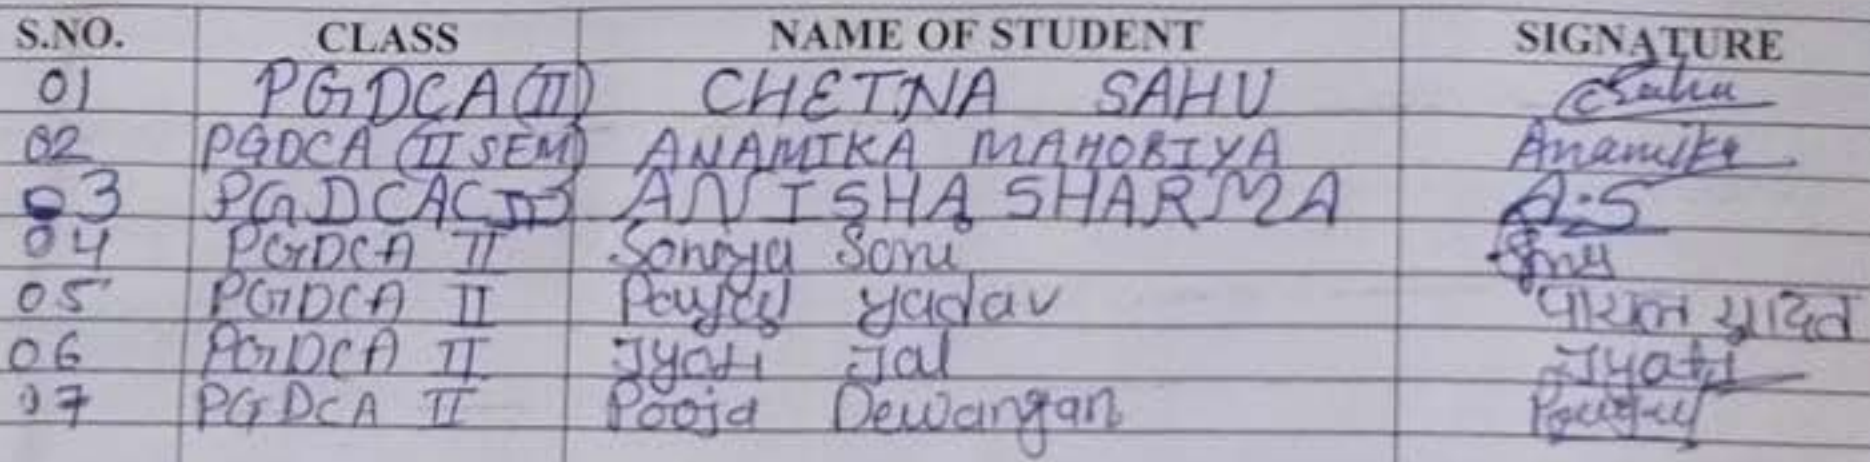 S.NO. CLASS NAME OF STUDENT SIGNATURE
01 PGDCA (II) CHETNA SAHU CSahu
02 PGDCA (II SEM) ANAMIKA MAHOBIYA Anamika
03 PGDCA (II) ANISHA SHARMA A.S
04 PGDCA II Soni
05 PGDCA II Payal yadav यादव
06 PGDCA II Jyoti Jal Jyoti
07 PGDCA II Pooja Dewangan